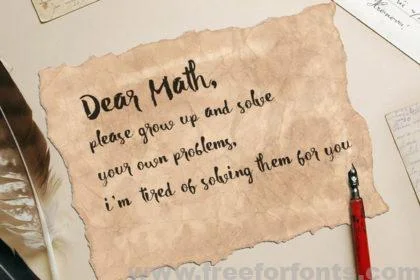 Dear Math,
please grow up and solve
your own problems,
i'm tired of solving them for you
www.freeforfonts.com